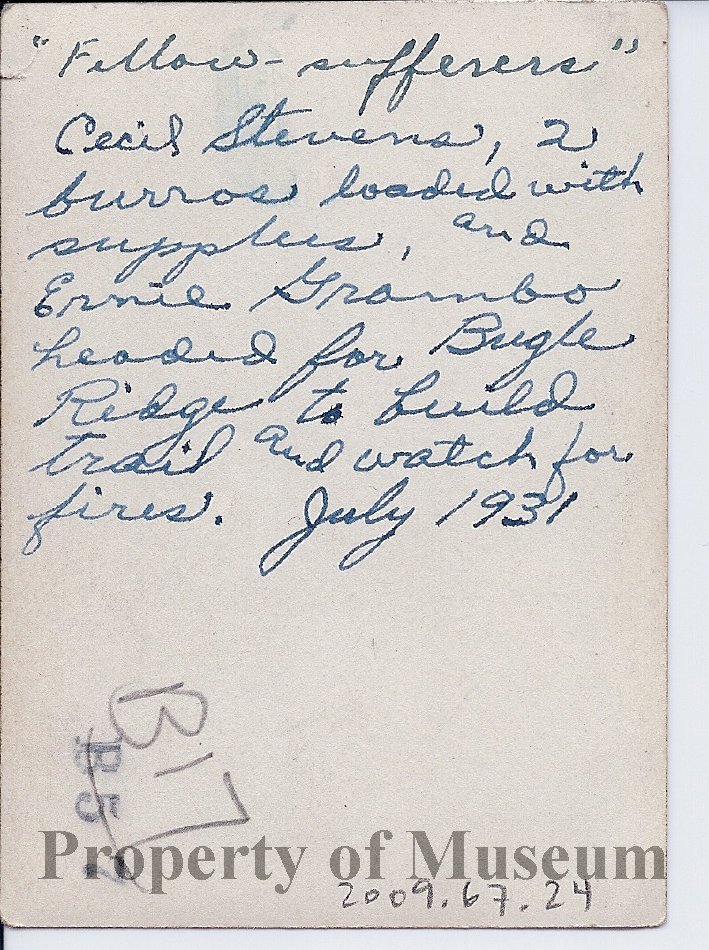 "Fellow-sufferers"
Cecil Stevens, 2
burros loaded with
supplies, and
Ernie Grambo
headed for Bugle
Ridge to build
trail and watch for
fires. July 1931
B17
Property of Museum
2009.67.24